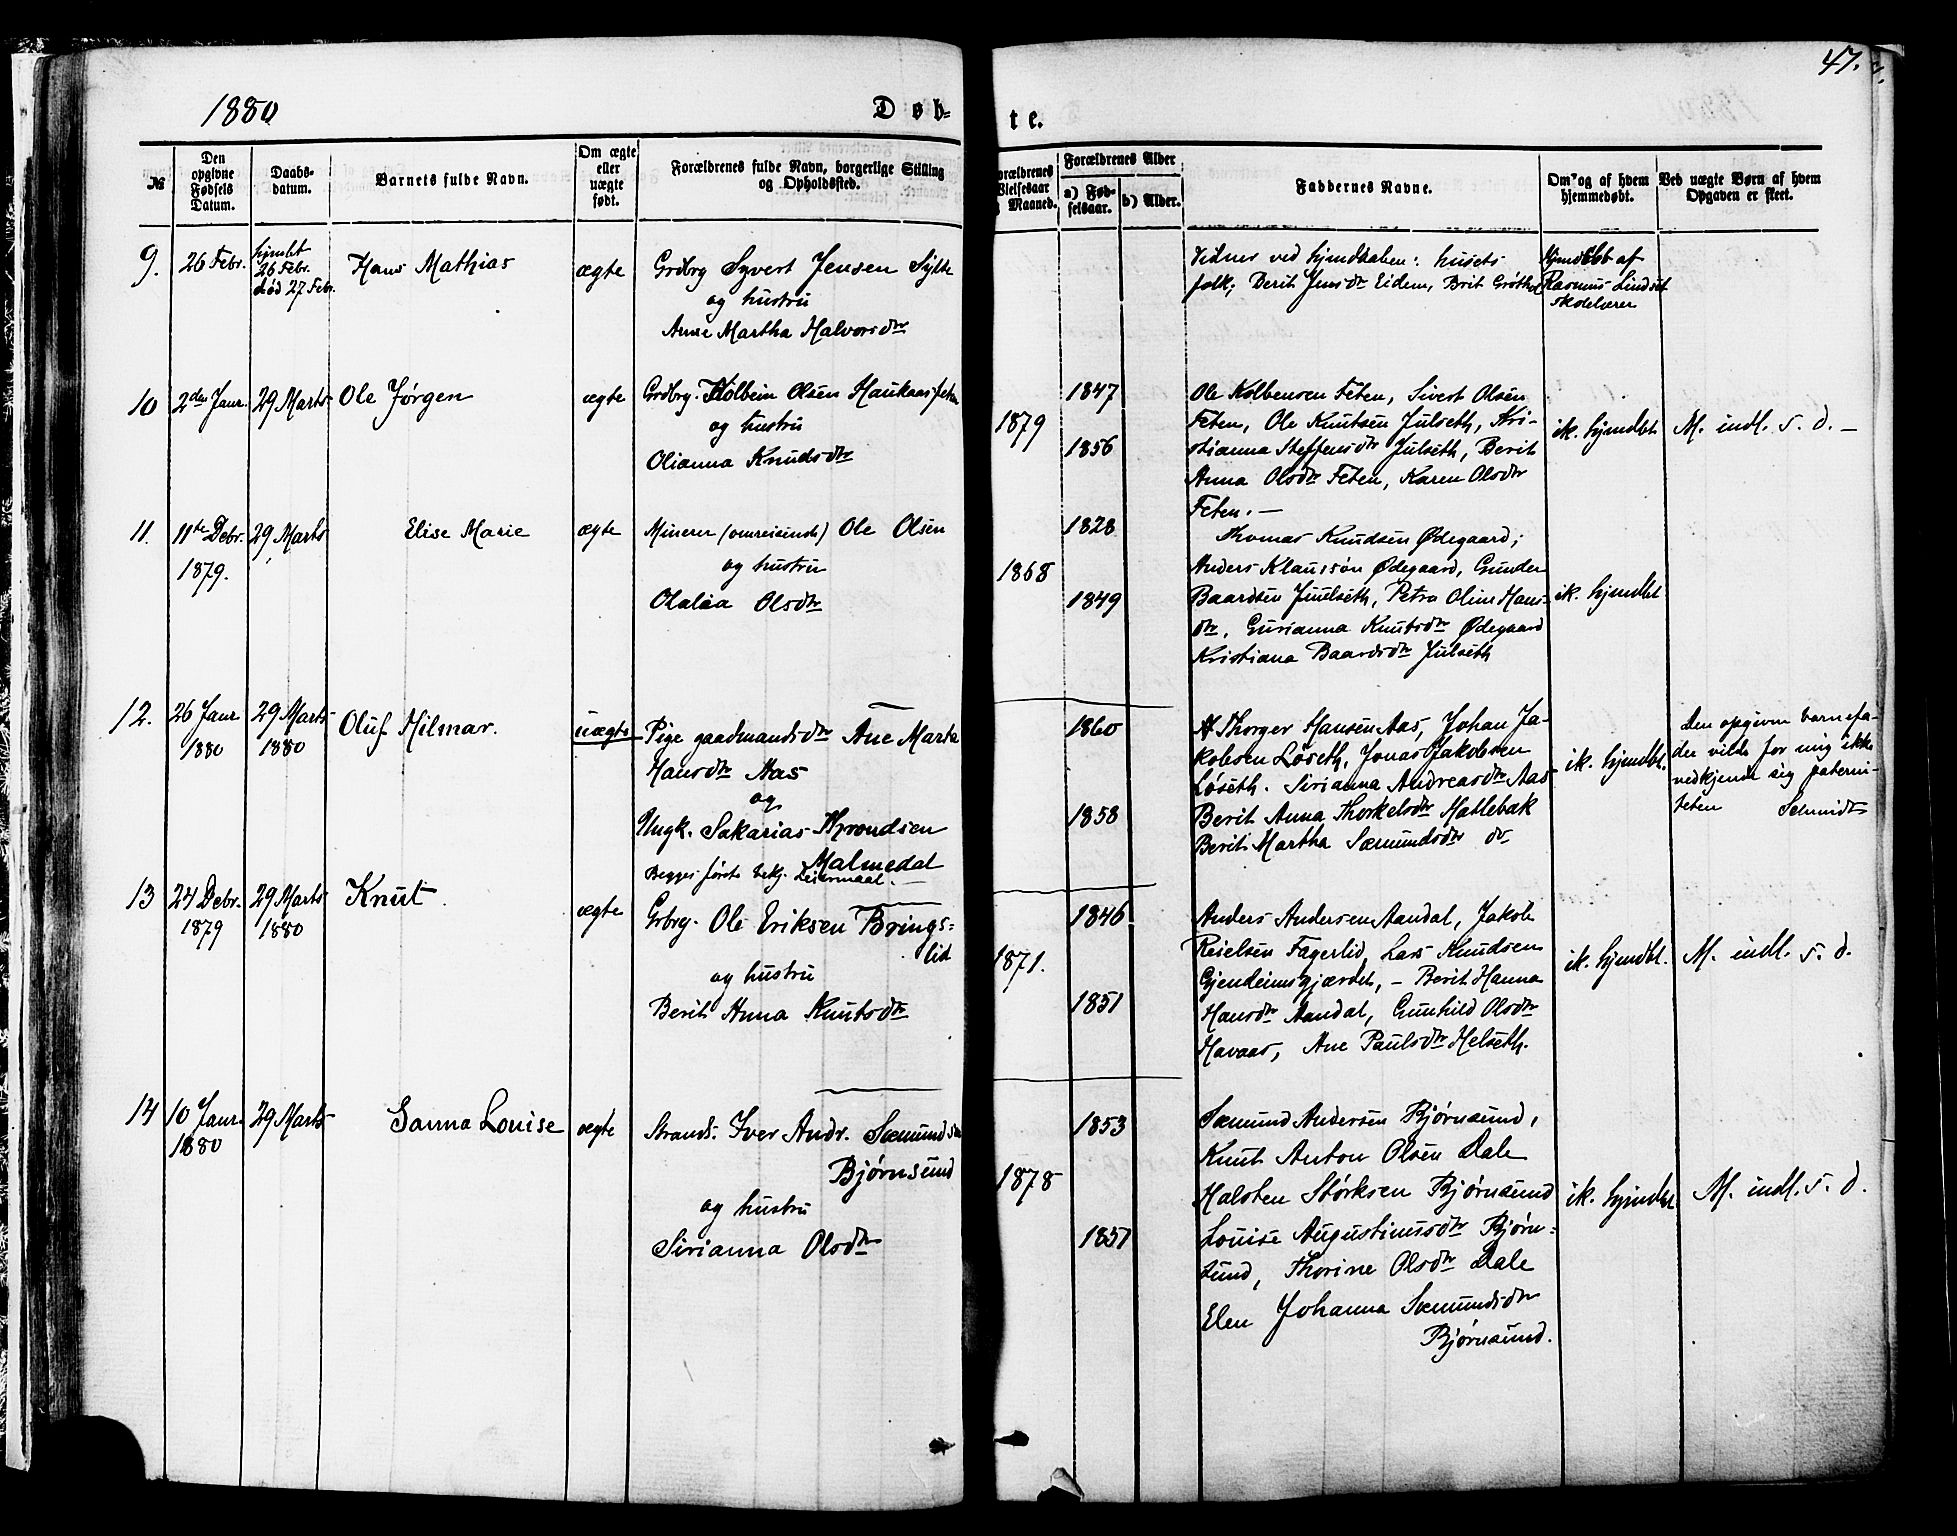 47.
1880
Døb-
te.
№
Den
opgivne
Fødsels
Datum.
Daabs-
datum.
Barnets fulde Navn.
Om ægte
eller
uægte
født.
Forældrenes fulde Navn, borgerlige Stilling
og Opholdssted.
Forældrenes
Vielsesaar
Maaned.
Forældrenes Alder
a) Fød-
selsaar.
b) Alder.
Faddernes Navne.
Om og af hvem
hjemmedøbt.
Ved uægte Børn af hvem
Opgaven er skeet.
9.
26 Febr.
hjmdbt
26 Febr.
død 27 Febr.
Hans Mathias
ægte
Grdbrg Syvert Jensen Sylte
og hustru
Anne Martha Halvorsdtr
Vidner ved hjmdaaben: husets
folk; Berit Jensdtr Eidem, Brit
Hjmdbt af
Rasmus Lindset
skolelærer
10
2den Janr.
29 Marts
Ole Jørgen
ægte
Grdbrg. Kolbein Olsen Haukaas
og hustru
Olianna Knudsdtr
1879
1847
1856
Ole Kolbensen Feten, Sivert Olsen
Feten, Ole Knutsen Julseth, Kri-
stianna Steffensdtr Julseth, Berit
Anna Olsdtr Feten, Karen Olsdtr
Feten. —
ik. hjmdbt
M. indl. s. d. —
11.
11te Debr.
1879.
29 Marts
Elise Marie
ægte
Minerer (omreisende) Ole Olsen
og hustru
Olalia Olsdtr
1868
1828
1849
Thomas Knudsen Ødegaard;
Anders Klaussøn Ødegaard, Gunder
Baardsen Juulseth, Petra Oline Hans-
dtr, Gurianna Knutsdtr Ødegaard
Kristiana Baardsdtr Julseth
ik. hjmdbt
12.
26 Janr
1880
29 Marts
1880
Oluf Hilmar.
uægte
Pige gaadmandsdtr Ane Marta
Hansdtr Aas
og
Ungk. Sakarias Throndsen
Malmedal
Begges første bekj. Leiermaal. —
1860
1858
Thorger Hansen Aas, Johan Ja-
kobsen Løseth, Jonas Jakobsen
Løseth. Sirianna Andreasdtr Aas
Berit Anna Thorkelsdtr Hatlebak
Berit Martha Sæmundsdtr do
ik. hjmdbt.
den opgivne barnefa-
der vilde for mig ikke
vedkjende sig paterni-
teten Schmidt
13
24 Debr.
1879
29 Marts
1880
Knut
ægte
Grbrg. Ole Eriksen Brings-
lid
og hustru
Berit Anna Knutsdtr
1871.
1846
1851
Anders Andersen Aandal, Jakob
Reielsen Fagerlid, Lars Knudsen
Gjendemsgjærdet, – Berit Hanna
Hansdtr Aandal, Gunhild Olsdtr
Havaas, Ane Paulsdtr Helseth.
ik. hjmdbt.
M. indl. s. d.
14
10 Janr.
1880
29 Marts
Sanna Louise
ægte
Strands. Iver Andr. Sæmundsen
Bjørnsund
og hustru
Sirianna Olsdtr
1878
1853
1851
Sæmund Andersen Bjørnsund,
Knut Anton Olsen Dale
Halsten Størksen Bjørnsund
Louise Augustinusdtr Bjørn-
sund, Thorine Olsdtr Dale
Elen Johanna Sæmundsdtr
Bjørnsund.
ik. hjmdbt
M. indl. s. d.